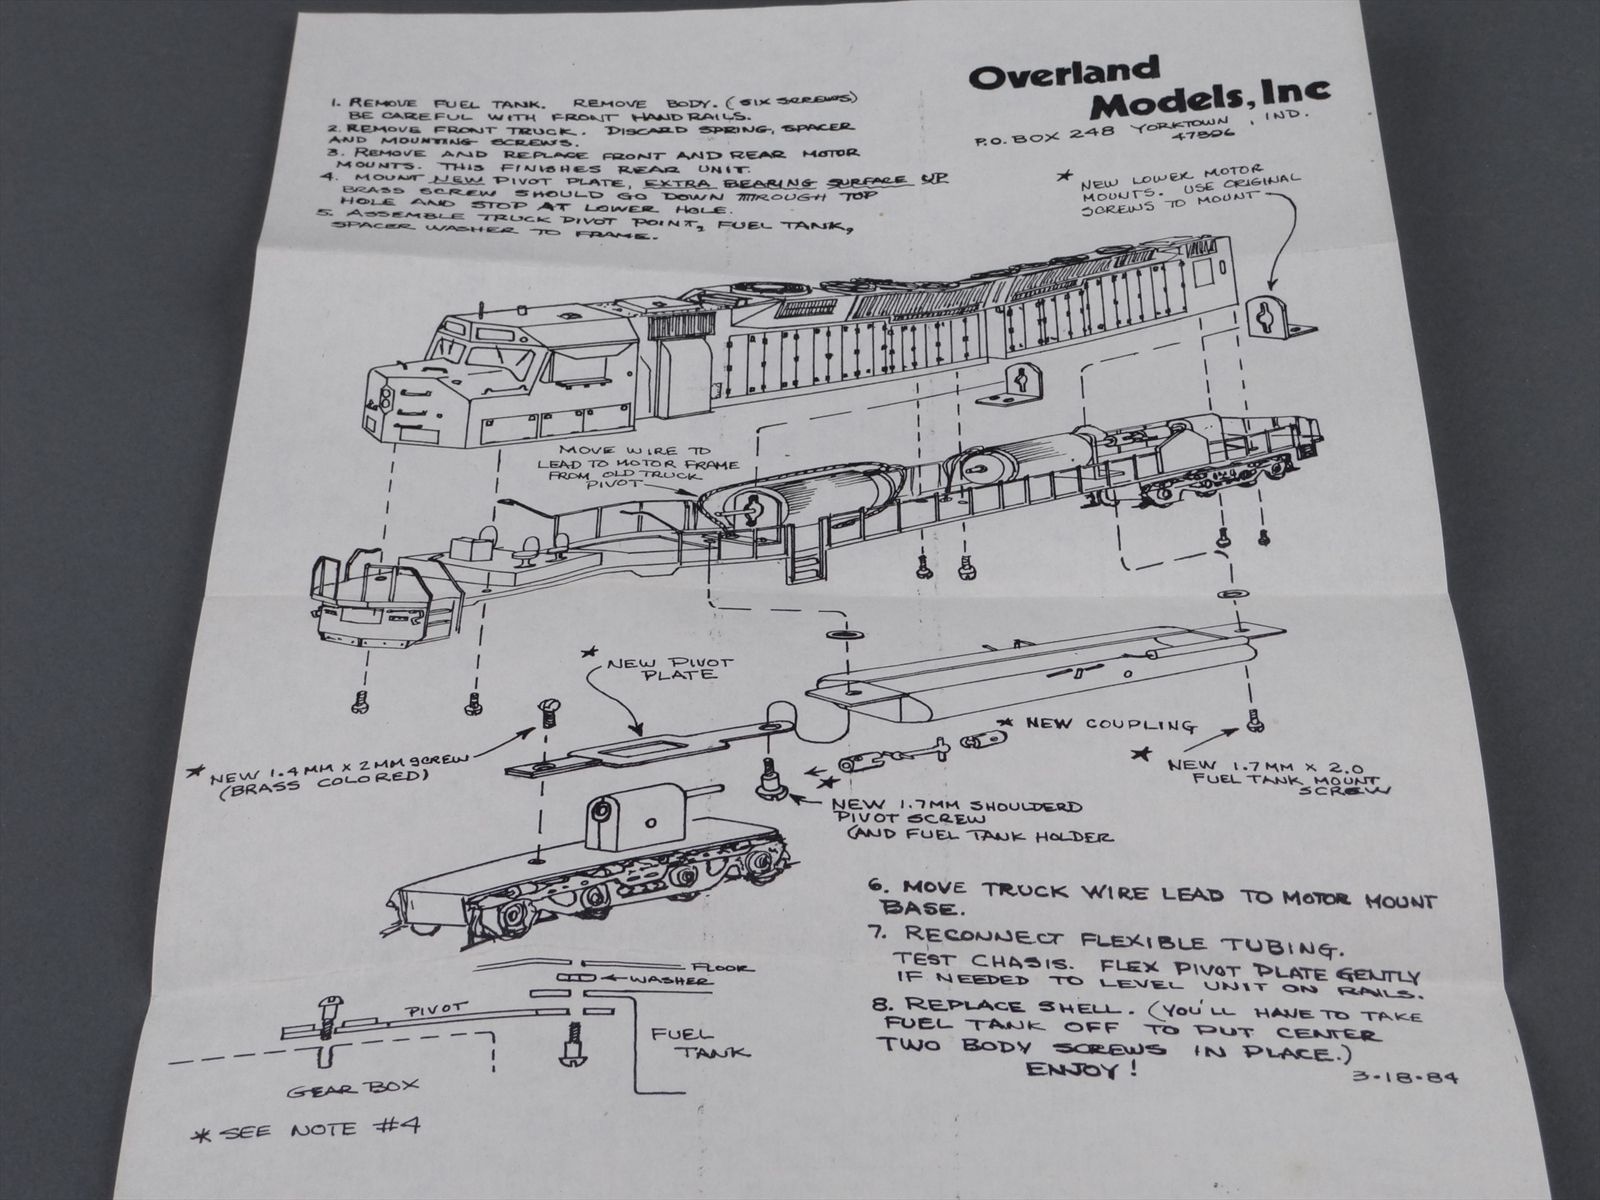 Overland
Models, Inc
P.O. BOX 248 YORKTOWN, IND.
47396
1. REMOVE FUEL TANK. REMOVE BODY. (SIX SCREWS)
BE CAREFUL WITH FRONT HANDRAILS.
2. REMOVE FRONT TRUCK. DISCARD SPRING, SPACER
AND MOUNTING SCREWS.
3. REMOVE AND REPLACE FRONT AND REAR MOTOR
MOUNTS. THIS FINISHES REAR UNIT.
4. MOUNT NEW PIVOT PLATE, EXTRA BEARING SURFACE UP
BRASS SCREW SHOULD GO DOWN THROUGH TOP
HOLE AND STOP AT LOWER HOLE.
5. ASSEMBLE TRUCK PIVOT POINT, FUEL TANK,
SPACER WASHER TO FRAME.
* NEW LOWER MOTOR
MOUNTS. USE ORIGINAL
SCREWS TO MOUNT
MOVE WIRE TO
LEAD TO MOTOR FRAME
FROM OLD TRUCK
PIVOT
* NEW PIVOT
PLATE
* NEW COUPLING
* NEW 1.4MM X 2MM SCREW
(BRASS COLORED)
* NEW 1.7MM X 2.0
FUEL TANK MOUNT
SCREW
* NEW 1.7MM SHOULDERD
PIVOT SCREW
(AND FUEL TANK HOLDER
6. MOVE TRUCK WIRE LEAD TO MOTOR MOUNT
BASE.
7. RECONNECT FLEXIBLE TUBING.
TEST CHASIS. FLEX PIVOT PLATE GENTLY
IF NEEDED TO LEVEL UNIT ON RAILS.
8. REPLACE SHELL. (YOU'LL HAVE TO TAKE
FUEL TANK OFF TO PUT CENTER
TWO BODY SCREWS IN PLACE.)
ENJOY!
3-18-84
FLOOR
WASHER
PIVOT
FUEL
TANK
GEAR BOX
* SEE NOTE #4